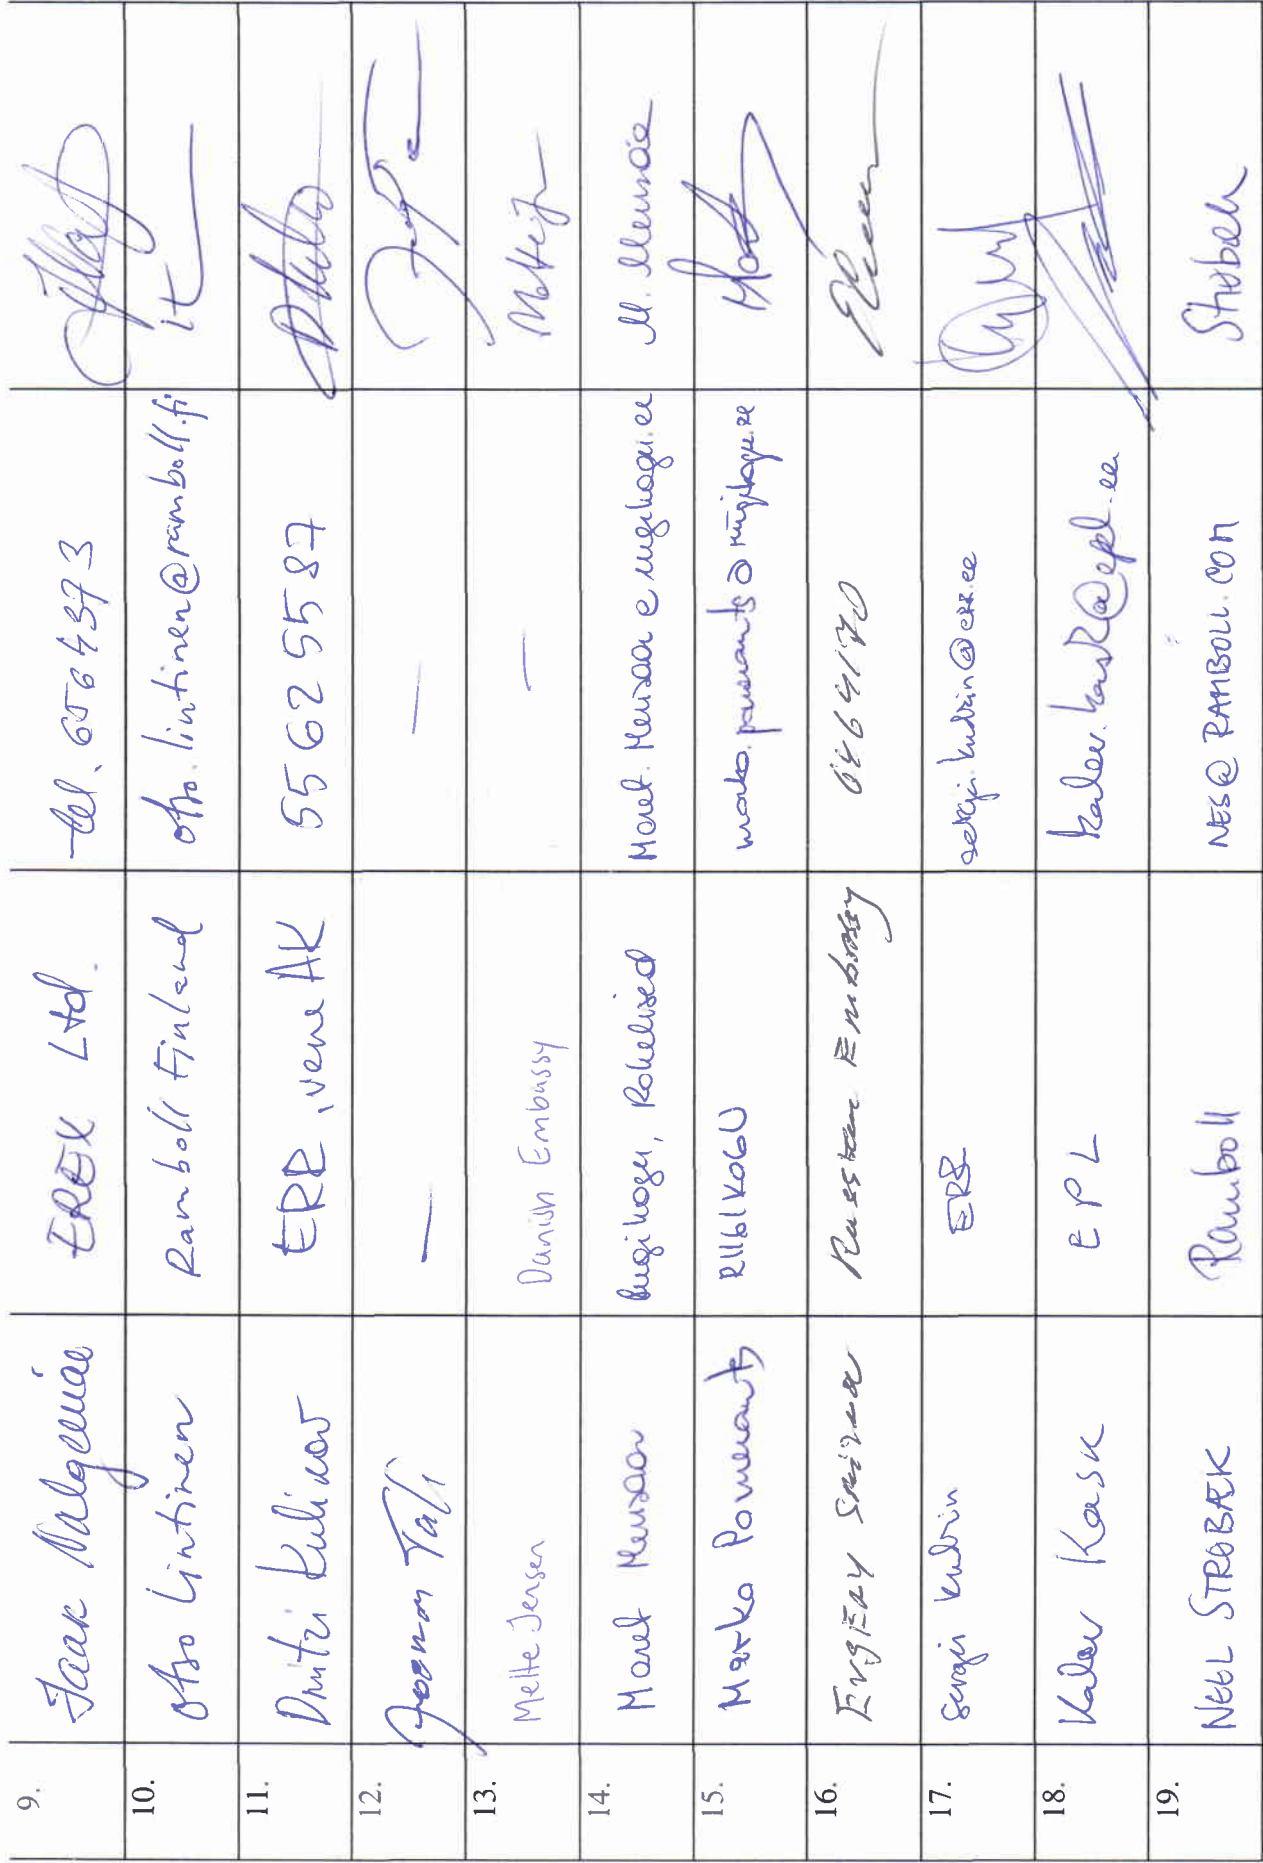 9. Jaak Nalgemäe EREK Ltd. tel. 6564373
10. Otso Lintinen Ramboll Finland otso.lintinen@ramboll.fi
11. Dmitri Kulikov ERR, vene AK 55625587
12. Joonas Tali — —
13. Mette Jensen Danish Embassy —
14. Maret Merisaar Riigikogu, Rohelised Maret.Merisaar@riigikogu.ee M. Merisaar
15. Marko Pomerants RIIGIKOGU marko.pomerants@riigikogu.ee
16. Evgeny Russian Embassy 6464170
17. Sergei Kudrin ERR sergei.kudrin@err.ee
18. Kalev Kask EPL kalev.kask@epl.ee
19. NEEL STRØBÆK Ramboll NES@RAMBOLL.COM Strøbæk